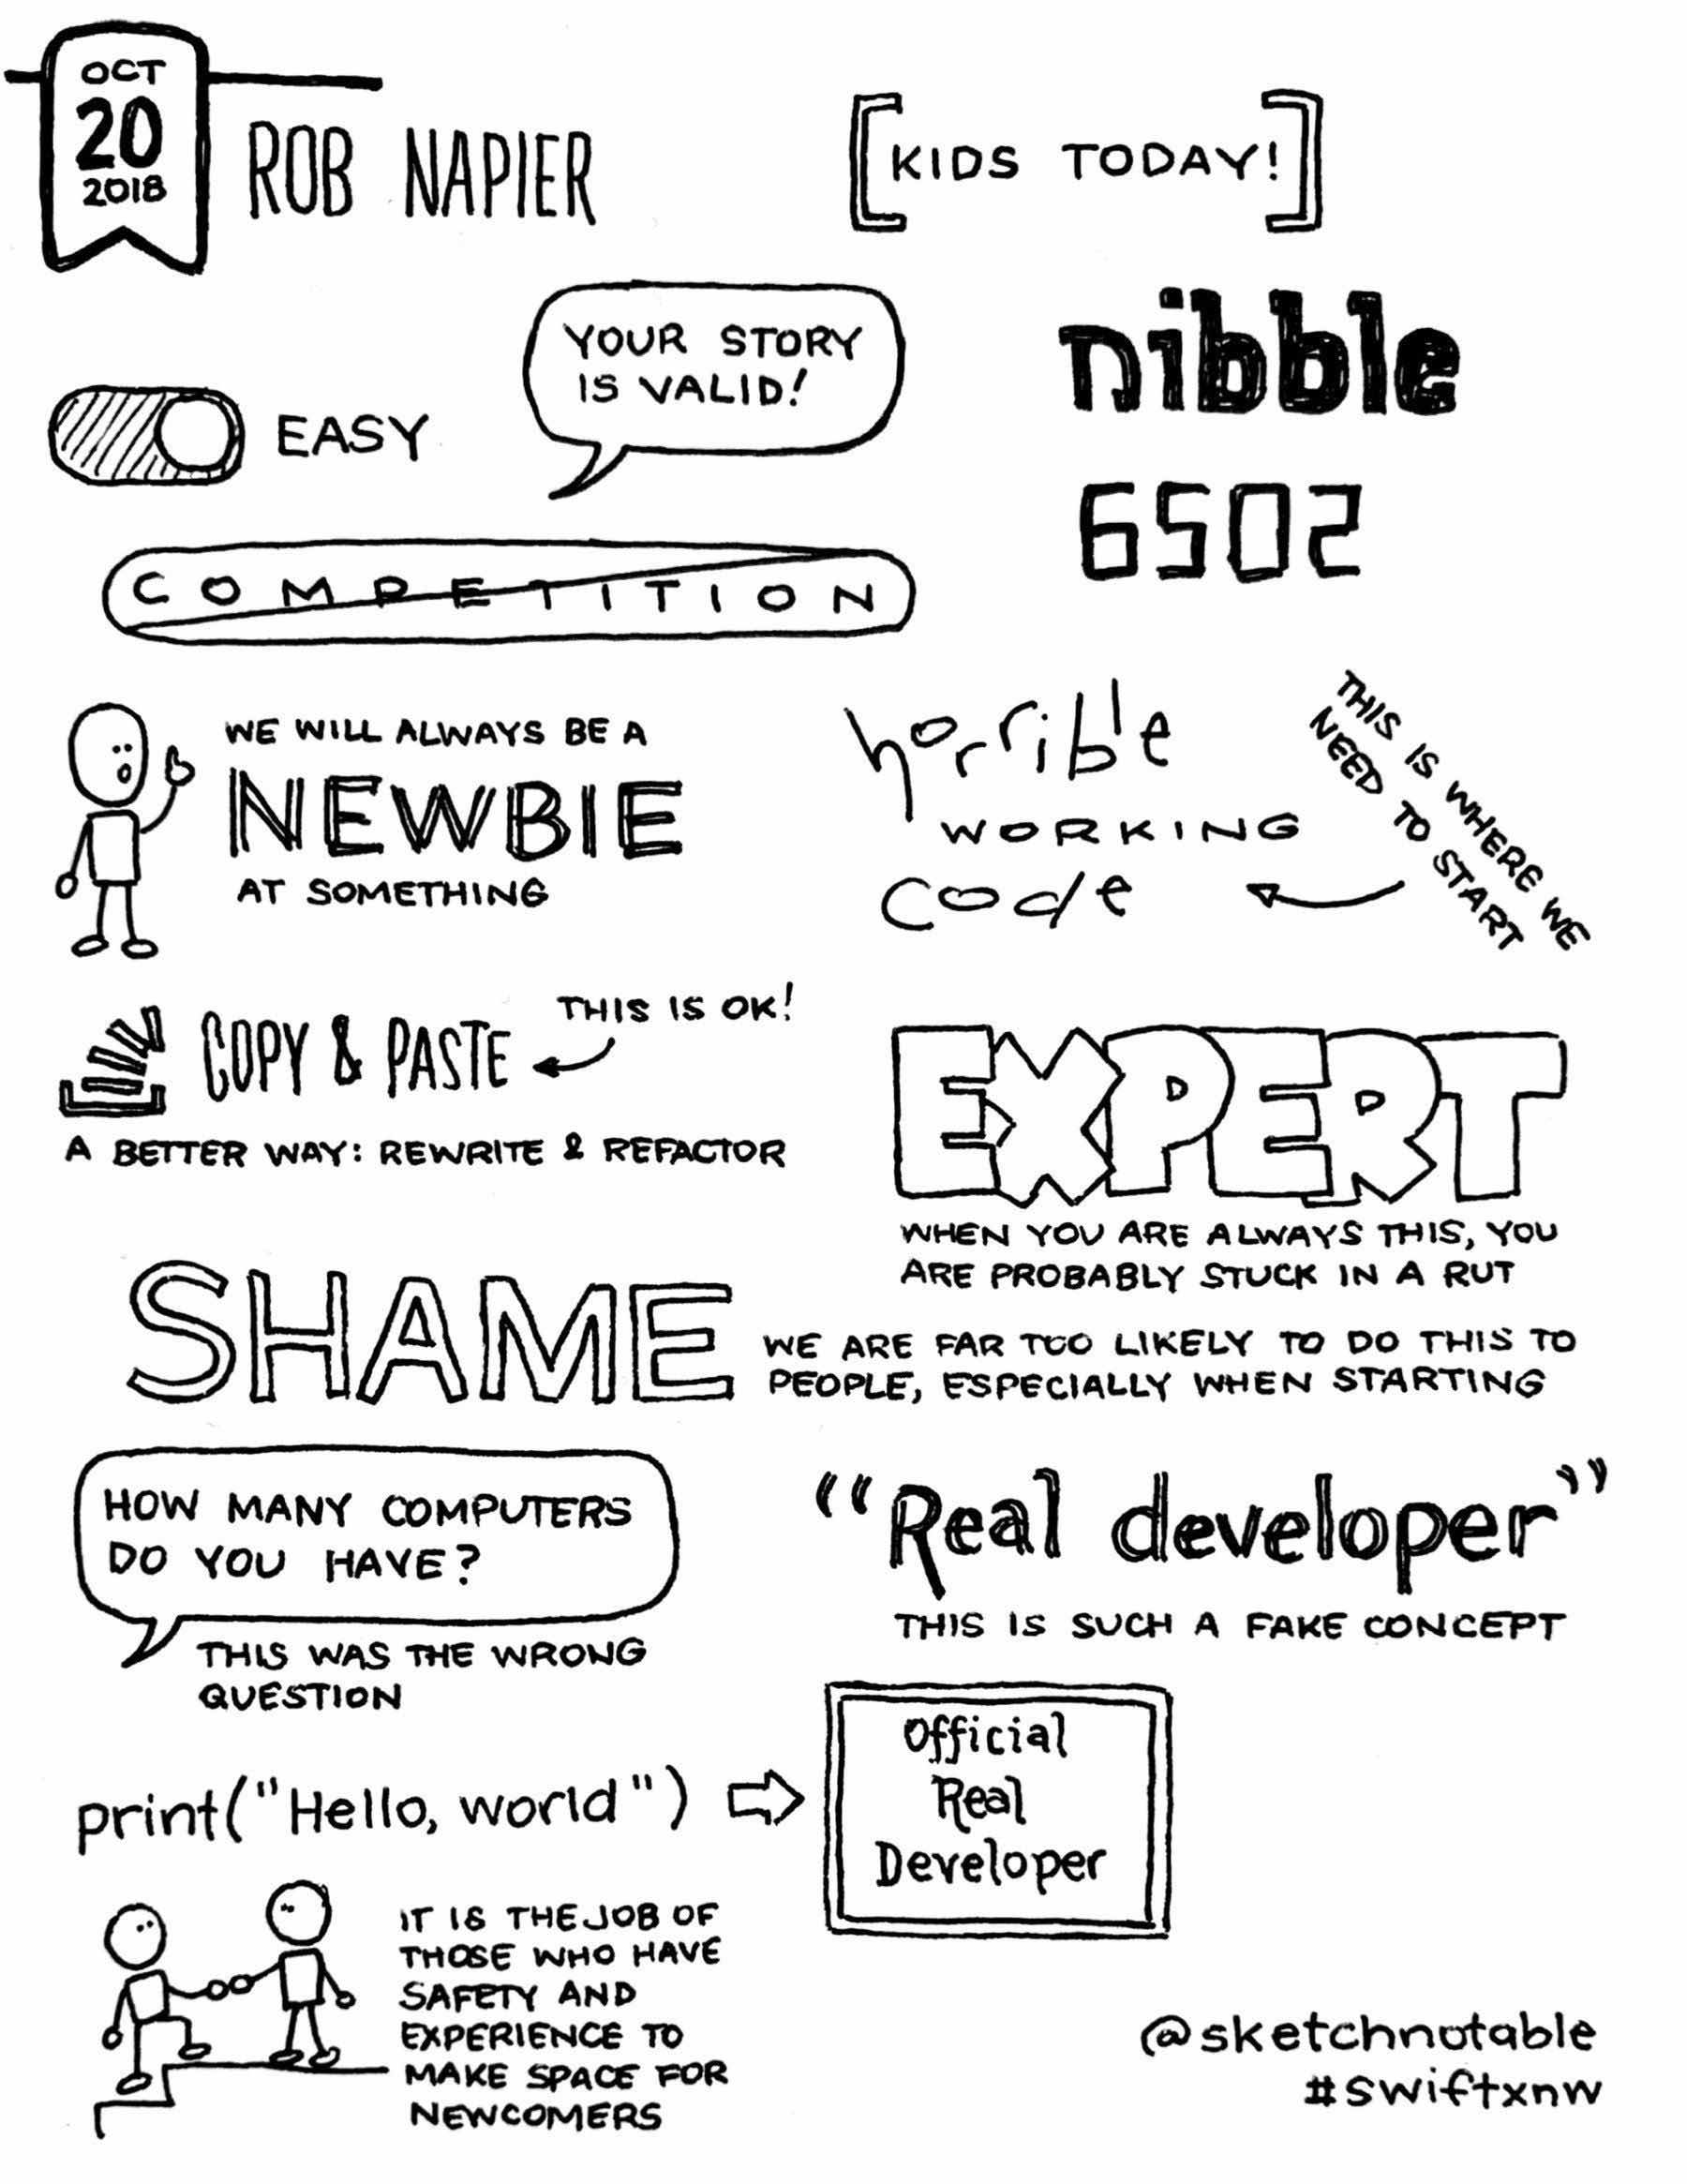 OCT
20
2018
ROB NAPIER
[KIDS TODAY!]
YOUR STORY
IS VALID!
nibble
EASY
6502
COMPETITION
WE WILL ALWAYS BE A
NEWBIE
AT SOMETHING
horrible
WORKING
code
THIS IS WHERE WE
NEED TO START
COPY & PASTE
THIS IS OK!
A BETTER WAY: REWRITE & REFACTOR
EXPERT
WHEN YOU ARE ALWAYS THIS, YOU
ARE PROBABLY STUCK IN A RUT
SHAME
WE ARE FAR TOO LIKELY TO DO THIS TO
PEOPLE, ESPECIALLY WHEN STARTING
HOW MANY COMPUTERS
DO YOU HAVE?
THIS WAS THE WRONG
QUESTION
"Real developer"
THIS IS SUCH A FAKE CONCEPT
print("Hello, world")
Official
Real
Developer
IT IS THE JOB OF
THOSE WHO HAVE
SAFETY AND
EXPERIENCE TO
MAKE SPACE FOR
NEWCOMERS
@sketchnotable
#swiftxnw